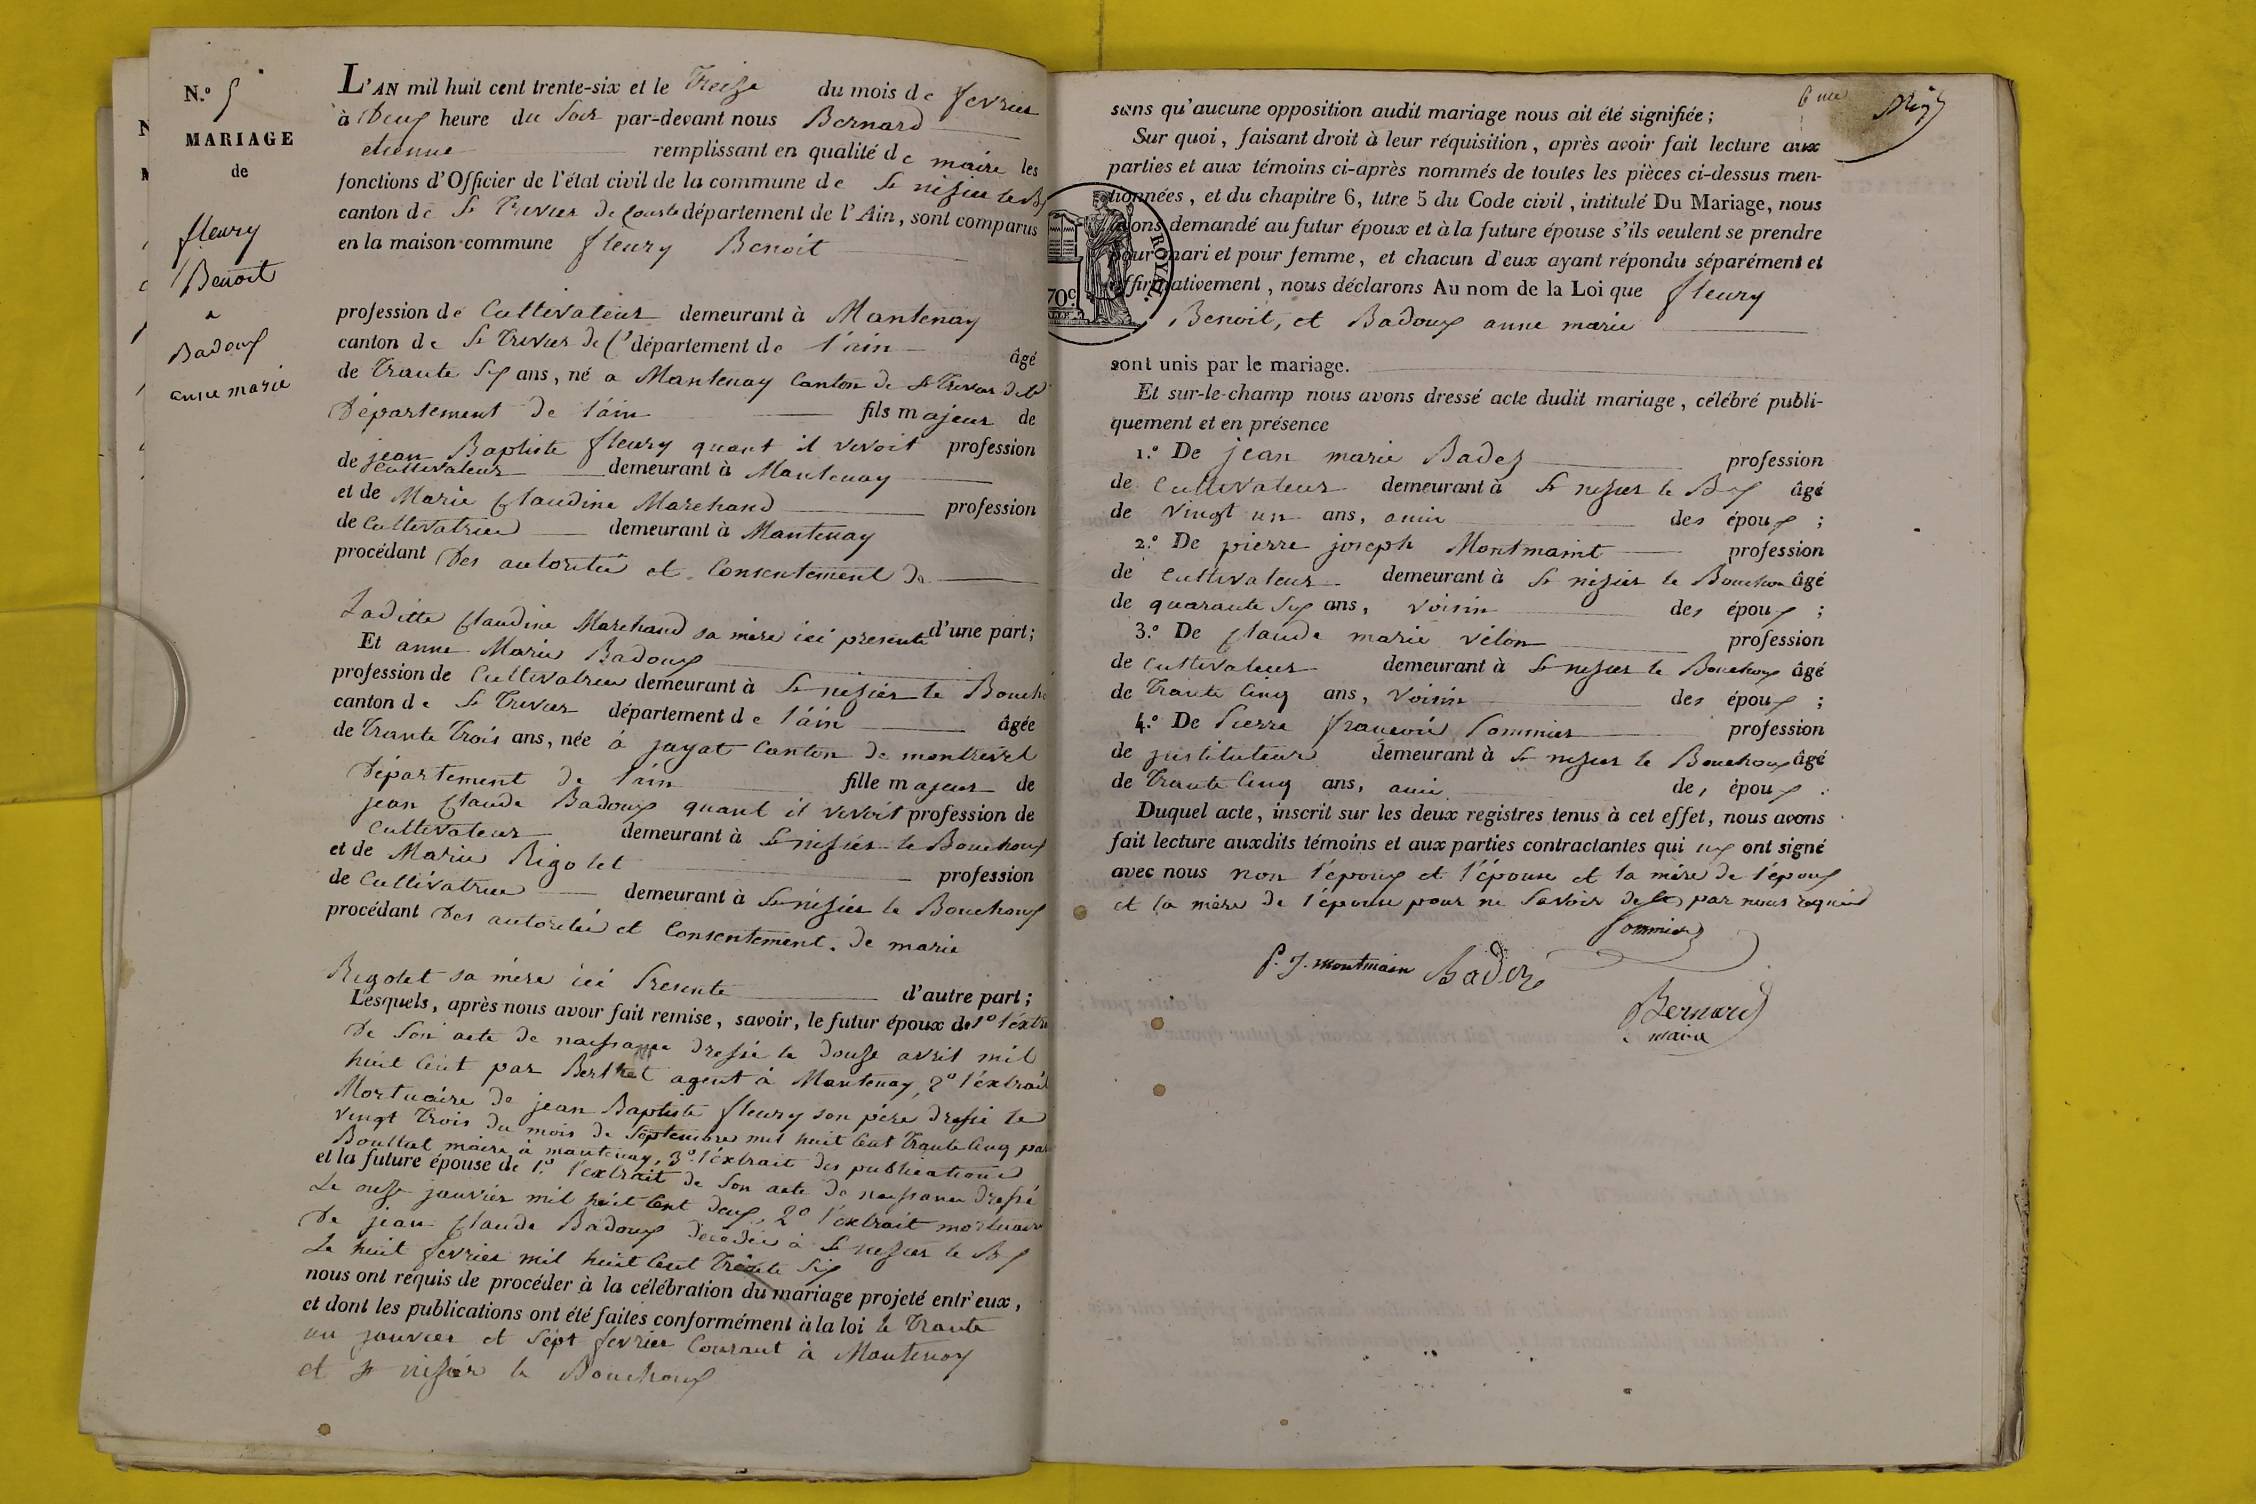 N.º 5
MARIAGE
de
fleury
Benoit
a
Badoux
anne marie
L'AN mil huit cent trente-six et le Treize du mois de fevrier
à Deux heure du Soir par-devant nous Bernard
etienne remplissant en qualité de maire les
fonctions d'Officier de l'état civil de la commune de St nizier le Bx
canton de St Trivier de Courte département de l'Ain, sont comparus
en la maison commune fleury Benoit
profession de Cultivateur demeurant à Mantenay
canton de St Trivier de C département de l'ain âgé
de Trante Six ans, né a Mantenay Canton de St Trivier de C
Département de l'ain fils majeur de
jean Baptiste fleury quant il vivoit profession
de Cultivateur demeurant à Mantenay
et de Marie Claudine Marchand profession
de Cultivatrice demeurant à Mantenay
procédant Des autorités et Consentement de
Laditte Claudine Marchand sa mère ici presente d'une part;
Et anne Marie Badoux
profession de Cultivatrice demeurant à St nizier le Bouch
canton de St Trivier département de l'ain âgée
de Trante Trois ans, née à jayat Canton de montrevel
Département de l'ain fille majeur de
jean Claude Badoux quant il vivoit profession de
Cultivateur demeurant à St nizier le Bouchoux
et de Marie Rigolet profession
de Cultivatrice demeurant à St nizier le Bouchoux
procédant Des autorités et Consentement de marie
Rigolet sa mère ici Presente d'autre part;
Lesquels, après nous avoir fait remise, savoir, le futur époux de 1º l'extr
De Son acte de naissance Dressé le douze avril mil
huit Cent par Berthet agent à Mantenay, 2º l'extrait
Mortuaire de jean Baptiste fleury son père Dressé le
vingt Trois du mois de Septembre mil huit Cent Trante Cinq par
maire à mantenay, 3º l'extrait des publications
et la future épouse de 1º l'extrait de Son acte de naissance Dressé
Le onze janvier mil huit Cent Deux, 2º l'extrait mortuaire
De jean Claude Badoux décédé à St nizier le Bx
Le huit fevrier mil huit Cent Trente Six
nous ont requis de procéder à la célébration du mariage projeté entr'eux,
et dont les publications ont été faites conformément à la loi le Trante
un janvier et Sept fevrier Courant à Mantenay
et St nizier le Bouchoux
6 me
sans qu'aucune opposition audit mariage nous ait été signifiée;
Sur quoi, faisant droit à leur réquisition, après avoir fait lecture aux
parties et aux témoins ci-après nommés de toutes les pièces ci-dessus men-
tionnées, et du chapitre 6, titre 5 du Code civil, intitulé Du Mariage, nous
avons demandé au futur époux et à la future épouse s'ils veulent se prendre
pour mari et pour femme, et chacun d'eux ayant répondu séparément et
affirmativement, nous déclarons Au nom de la Loi que fleury
ROYAL.
70c.
Benoit, et Badoux anne marie
sont unis par le mariage.
Et sur-le-champ nous avons dressé acte dudit mariage, célébré publi-
quement et en présence
1.º De jean marie Badez profession
de Cultivateur demeurant à St nizier le Bx âgé
de vingt un ans, amis des époux;
2.º De pierre joseph Montmaint profession
de Cultivateur demeurant à St nizier le Bouchou âgé
de quarante Six ans, voisin des époux;
3.º De Claude marie vélon profession
de Cultivateur demeurant à St nizier le Bouchoux âgé
de Trante Cinq ans, voisin des époux;
4.º De Pierre françois Sommier profession
de jnstituteur demeurant à St nizier le Bouchoux âgé
de Trante Cinq ans, ami des époux.
Duquel acte, inscrit sur les deux registres tenus à cet effet, nous avons
fait lecture auxdits témoins et aux parties contractantes qui ont signé
avec nous non l'époux et l'épouse et la mère de l'époux
et la mère de l'épouse pour ne Savoir de par nous requis
Sommier
P. J. montmain Badez
Bernard
maire